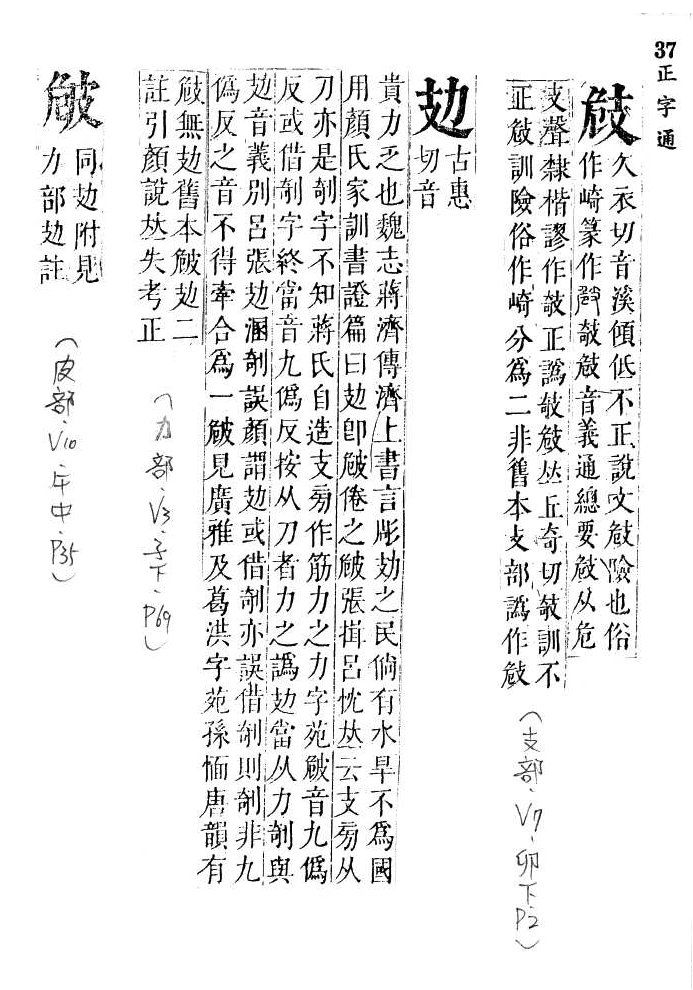 37
正字通
㩻
久衣切音溪傾低不正說文㩻隃也俗
作崎篆作敧㩻音義通總要㩻从危
支聲隸楷謬作攲正譌攲㩻𠀤丘奇切攲訓不
正㩻訓險俗作崎分爲二非舊本支部譌作㩻
(支部·V7·卯下·P2)
攰
古惠
切音
貴力乏也魏志蔣濟傳濟上書言彫攰之民倘有水旱不爲國
用顏氏家訓書證篇曰攰卽倦之張揖呂忱𠀤云支旁从
刀亦是剞字不知蔣氏自造支旁作筋力之力字苑音九僞
反或借剞字終當音九僞反按从刀者力之譌攰當从力剞與
攰音義別呂張攰溷剞誤顏謂攰或借剞亦誤借剞則剞非九
僞反之音不得牽合爲一見廣雅及葛洪字苑孫愐唐韻有
無攰舊本攰二
註引顏說𠀤失考正
(力部·V3·子下·P69)
同攰附見
力部攰註
(皮部·V10·午中·P35)